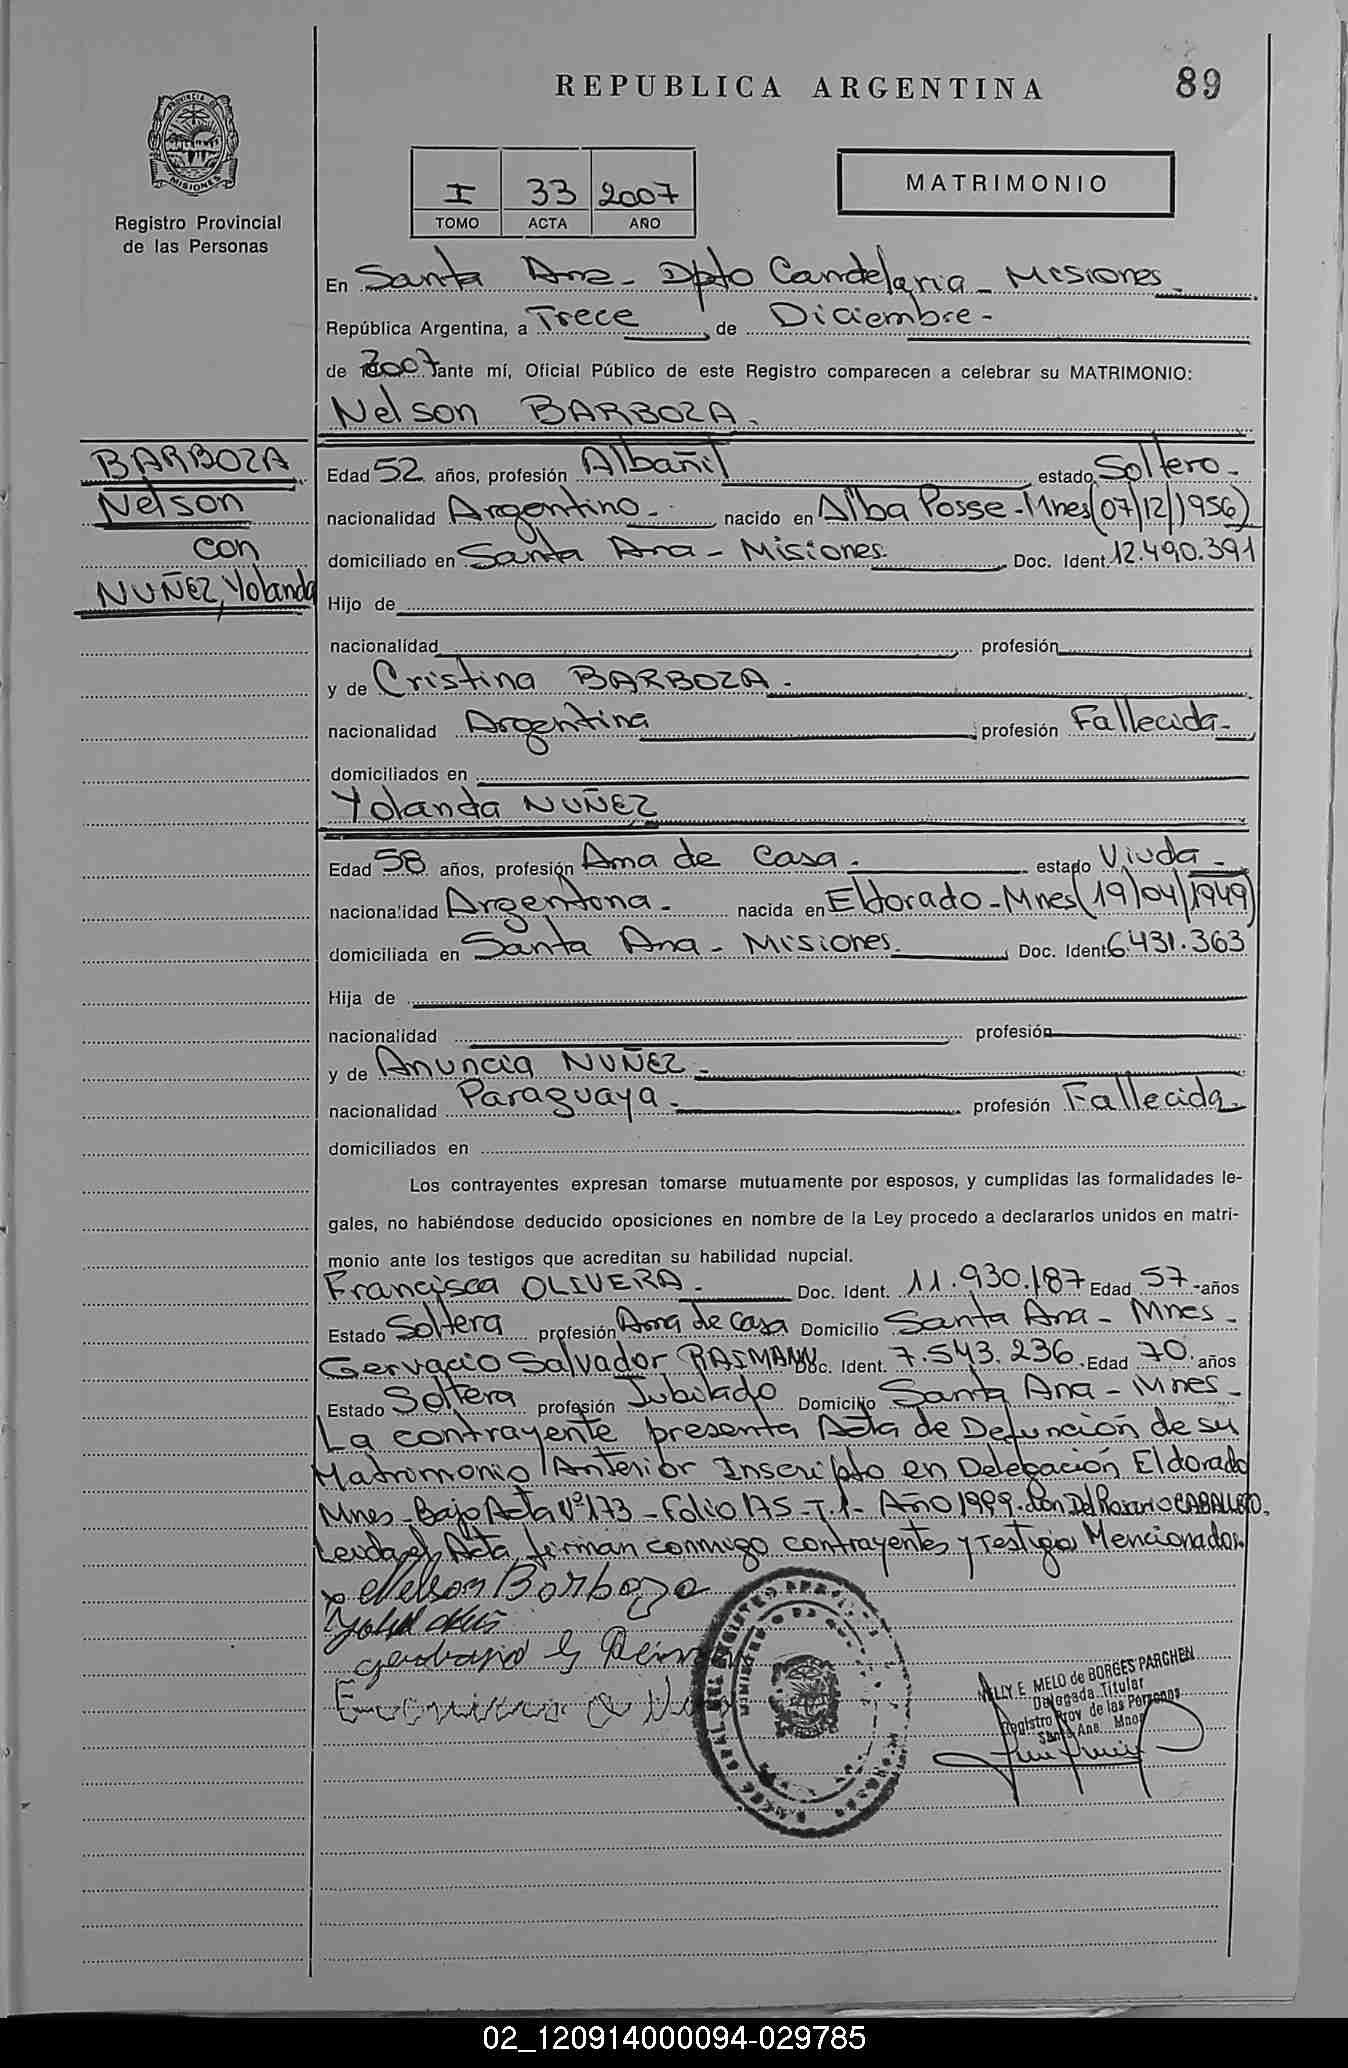 REPUBLICA ARGENTINA
89
PROVINCIA DE
MISIONES
Registro Provincial
de las Personas
I 33 2007
TOMO ACTA AÑO
MATRIMONIO
En Santa Ana - Dpto Candelaria - Misiones -
República Argentina, a Trece de Diciembre -
de 2007 ante mí, Oficial Público de este Registro comparecen a celebrar su MATRIMONIO:
Nelson BARBOZA.
BARBOZA
Nelson
con
NUÑEZ, Yolanda
Edad 52 años, profesión Albañil estado Soltero -
nacionalidad Argentino - nacido en Alba Posse - Mnes (07/12/1956)
domiciliado en Santa Ana - Misiones. Doc. Ident. 12.490.391
Hijo de
nacionalidad profesión
y de Cristina BARBOZA -
nacionalidad Argentina profesión Fallecida -
domiciliados en
Yolanda NUÑEZ
Edad 58 años, profesión Ama de Casa. estado Viuda -
nacionalidad Argentona - nacida en Eldorado - Mnes (19/04/1949)
domiciliada en Santa Ana - Misiones. Doc. Ident. 6.431.363
Hija de
nacionalidad profesión
y de Anuncia NUÑEZ -
nacionalidad Paraguaya - profesión Fallecida -
domiciliados en
Los contrayentes expresan tomarse mutuamente por esposos, y cumplidas las formalidades le-
gales, no habiéndose deducido oposiciones en nombre de la Ley procedo a declararlos unidos en matri-
monio ante los testigos que acreditan su habilidad nupcial.
Francisca OLIVERA - Doc. Ident. 11.930.187 Edad 57 años
Estado Soltera profesión Ama de Casa Domicilio Santa Ana - Mnes -
Gervacio Salvador RAIMANN Doc. Ident. 7.543.236 Edad 70 años
Estado Soltera profesión Jubilado Domicilio Santa Ana - Mnes -
La contrayente presenta Acta de Defunción de su
Matrimonio Anterior Inscripto en Delegación Eldorado
Mnes - Bajo Acta Nº 173 - Folio 175 - T. 1 - Año 1999. Con Del Rosario CABALLERO.
Leida el Acta, firman conmigo contrayentes y Testigos Mencionados.
Nelson Barboza
NELLY E. MELO de BORGES PARCHEN
Delegada Titular
Registro Prov de las Personas
Santa Ana Mnes
02_120914000094-029785